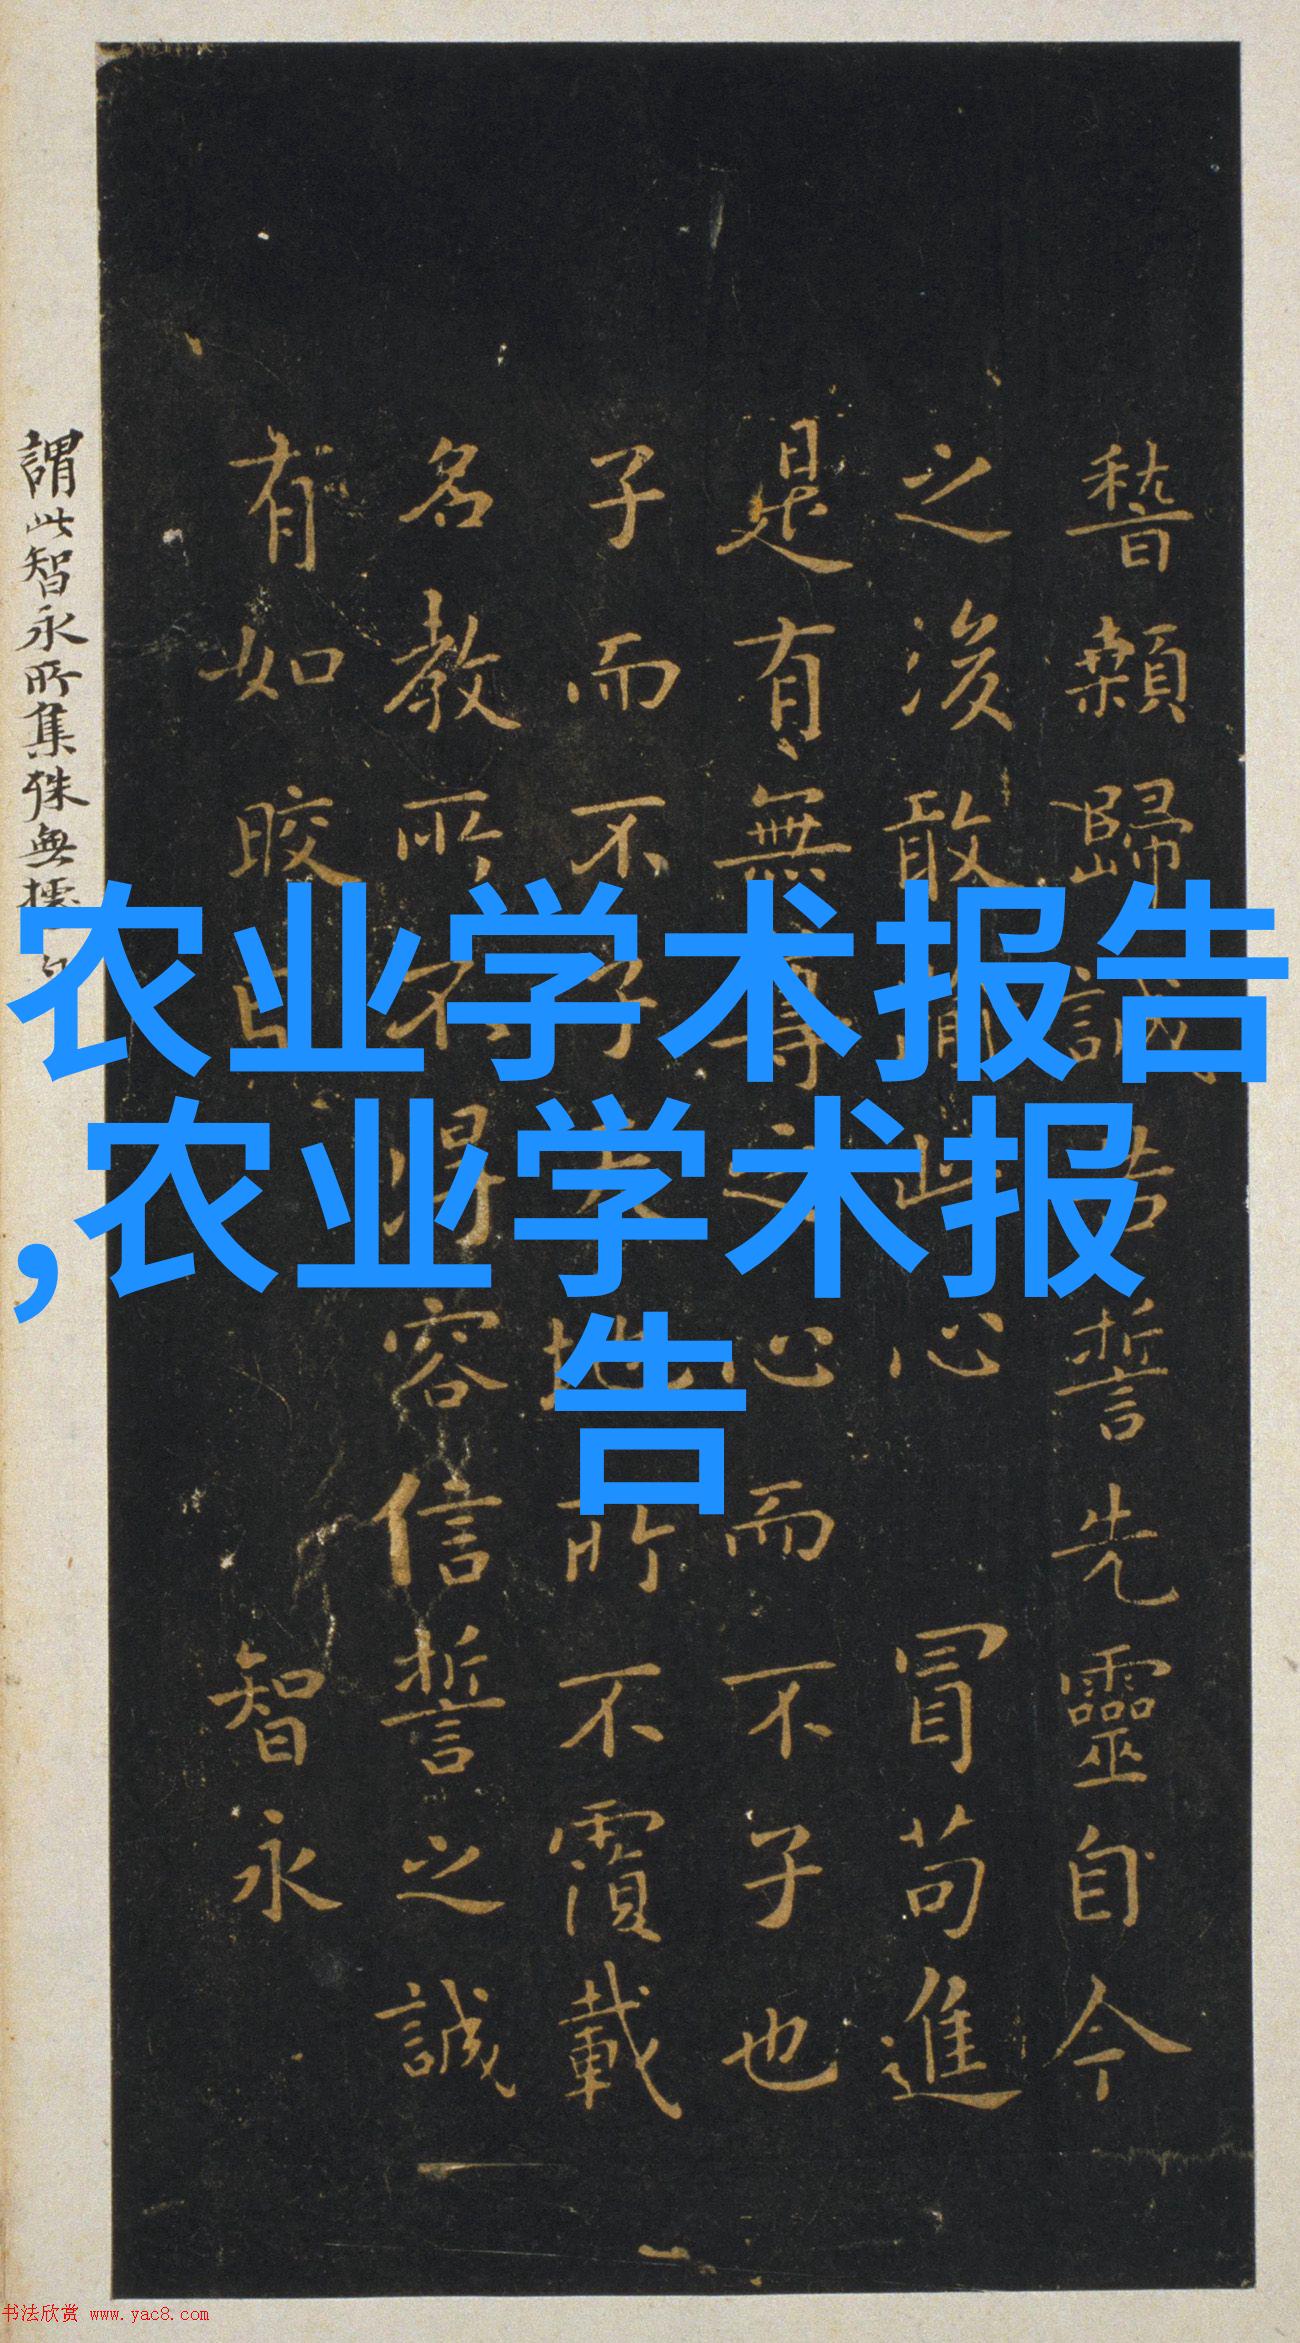 农业学术报告
,农业学术报
告
稽顙歸誠告誓先靈自今
之後敢渝此心冒苟進
是有無尊之心而不子也
子而不子天地所不覆載
名教所不得容信誓之誠
有如皎日
智永
謂此智永所集殊無據
书法欣赏 www.yac8.com